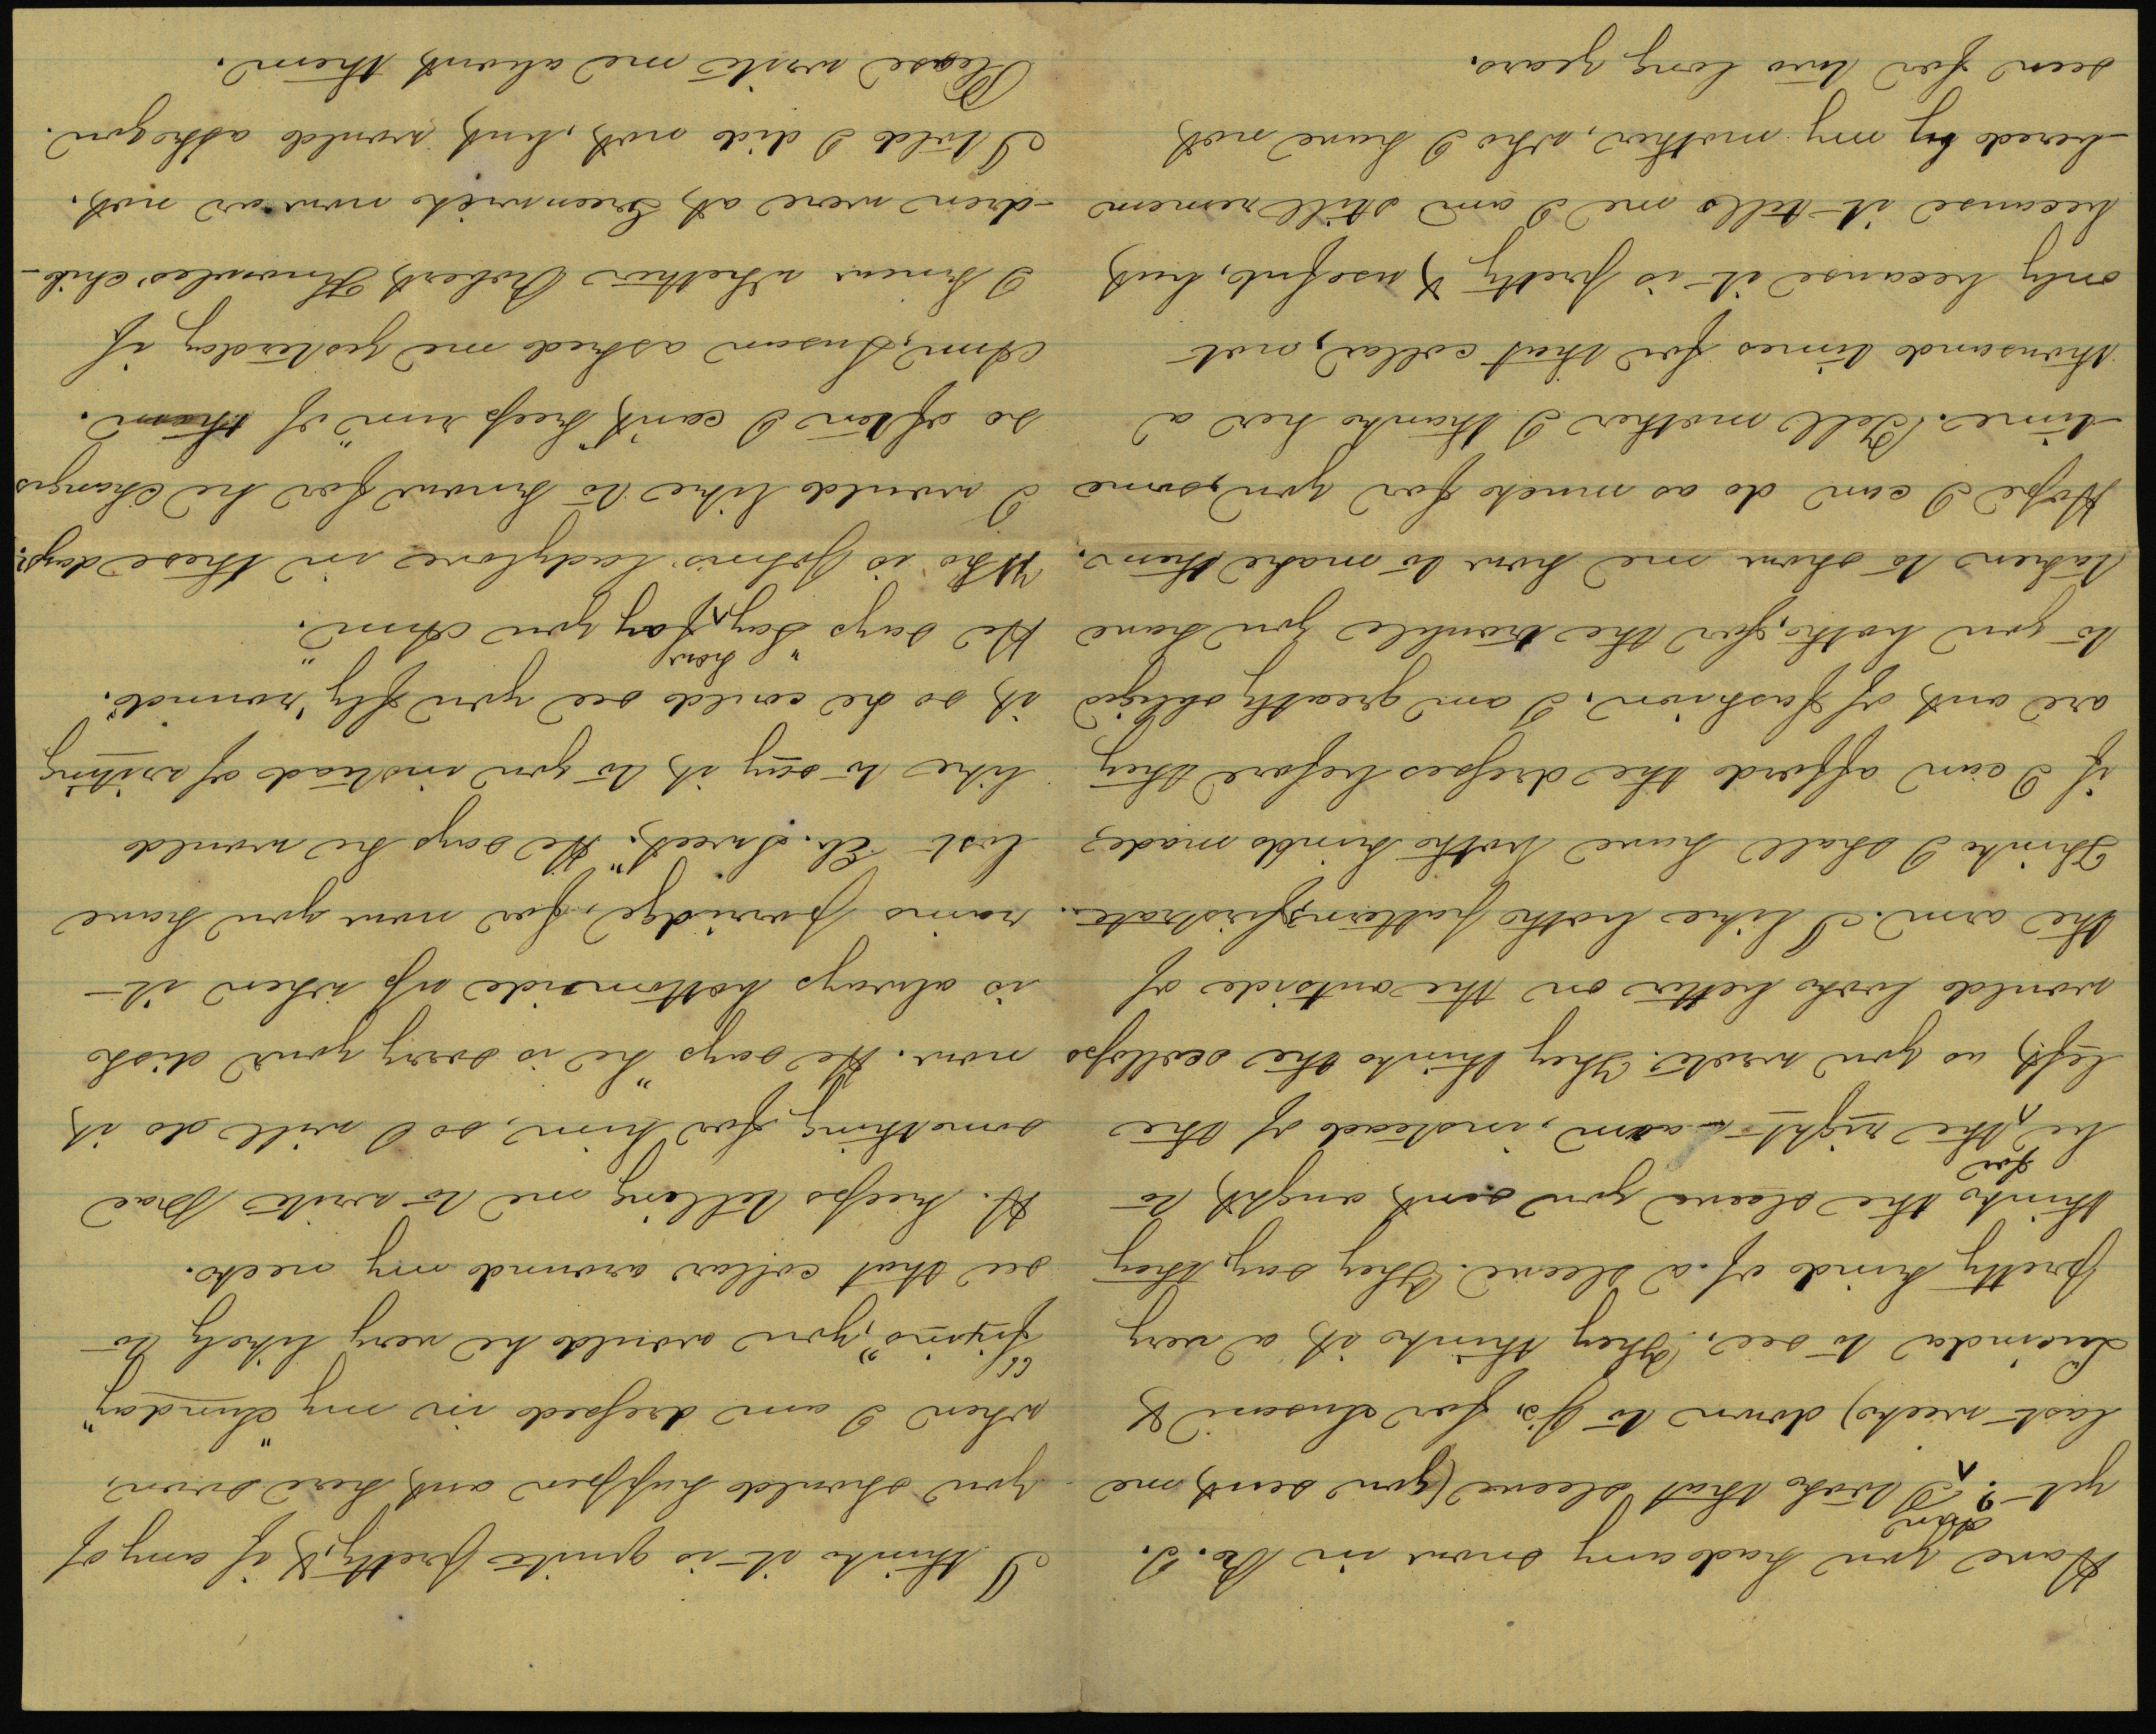 Have you had any snow in Ro. I.
yet? I took that sleeve (you sent me
last week) down to J's, for Susan &
Lucinda to see. They think it a very
pretty kind of a sleeve. They say, they
think the sleeve you sent ought to
be for the right arm, instead of the
left, as you wrote. They think the scallops
would look better on the outside of
the arm. I like both patterns, firstrate.
Think I shall have both kinds made,
if I can afford the dresses before they
are out of fashion. I am greatly obliged
to you both, for the trouble you have
taken to show me how to make them.
Hope I can do as much for you, some
time. Tell mother I thank her a
thousand times for that collar, not
only because it is pretty & useful, but
because it tells me I am still remem
-bered by my mother, who I have not
seen for two long years.
I think it is quite pretty, & if any of
you should happen out here soon,
when I am dressed in my "Sunday
"fixins", you would be very likely to
see that collar around my neck.
H. keeps telling me to write Pra
something for him, so I will do it
now. He says "he is sorry your dish
is always bottomside up when it
rains porridge, for now you have
lost Eb. Sweet." He says he would
like to say it to you instead of writing
it, so he could see you fly 'round".
He says "Say, how fay you Ann."
Who is John's ladylove in these days?
I would like to know for he changes
so often I can't "keep run" of them.
Ann, Susan asked me yesterday if
I knew whether Robert Knowles' chil-
-dren were at Greenwich now or not.
I told I did not, but would ask you.
Please write me about them.